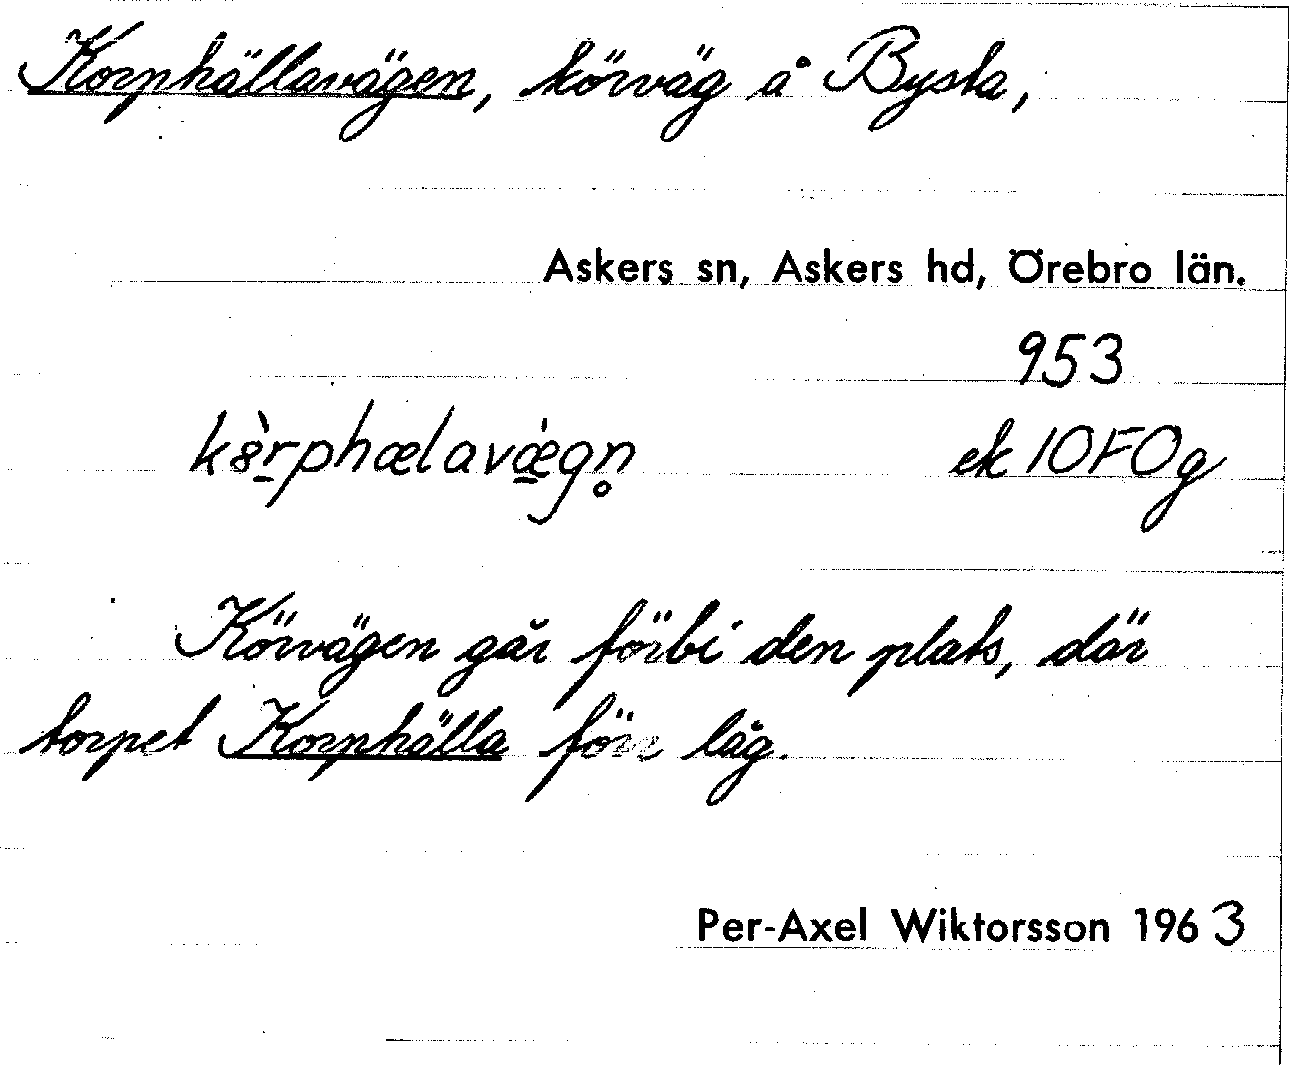 Korphällavägen, körväg å Bysta,
Askers sn, Askers hd, Örebro län.
953
k8̀r̠phælavǽ̠gn̥ ek 10F0g
Körvägen går förbi den plats, där
torpet Korphälla förr låg.
Per-Axel Wiktorsson 1963